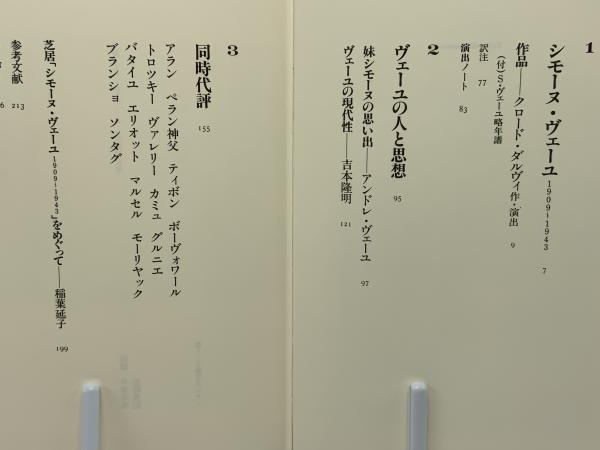 1
シモーヌ・ヴェーユ 1909–1943 7
作品——クロード・ダルヴィ作・演出 9
(付)S・ヴェーユ略年譜
訳注 77
演出ノート 83
2
ヴェーユの人と思想 95
妹シモーヌの思い出——アンドレ・ヴェーユ 97
ヴェーユの現代性——吉本隆明 121
3
同時代評 155
アラン ペラン神父 ティボン ボーヴォワール
トロツキー ヴァレリー カミュ グルニエ
バタイユ エリオット マルセル モーリヤック
ブランショ ソンタグ
芝居「シモーヌ・ヴェーユ1909–1943」をめぐって——稲葉延子 199
参考文献 213